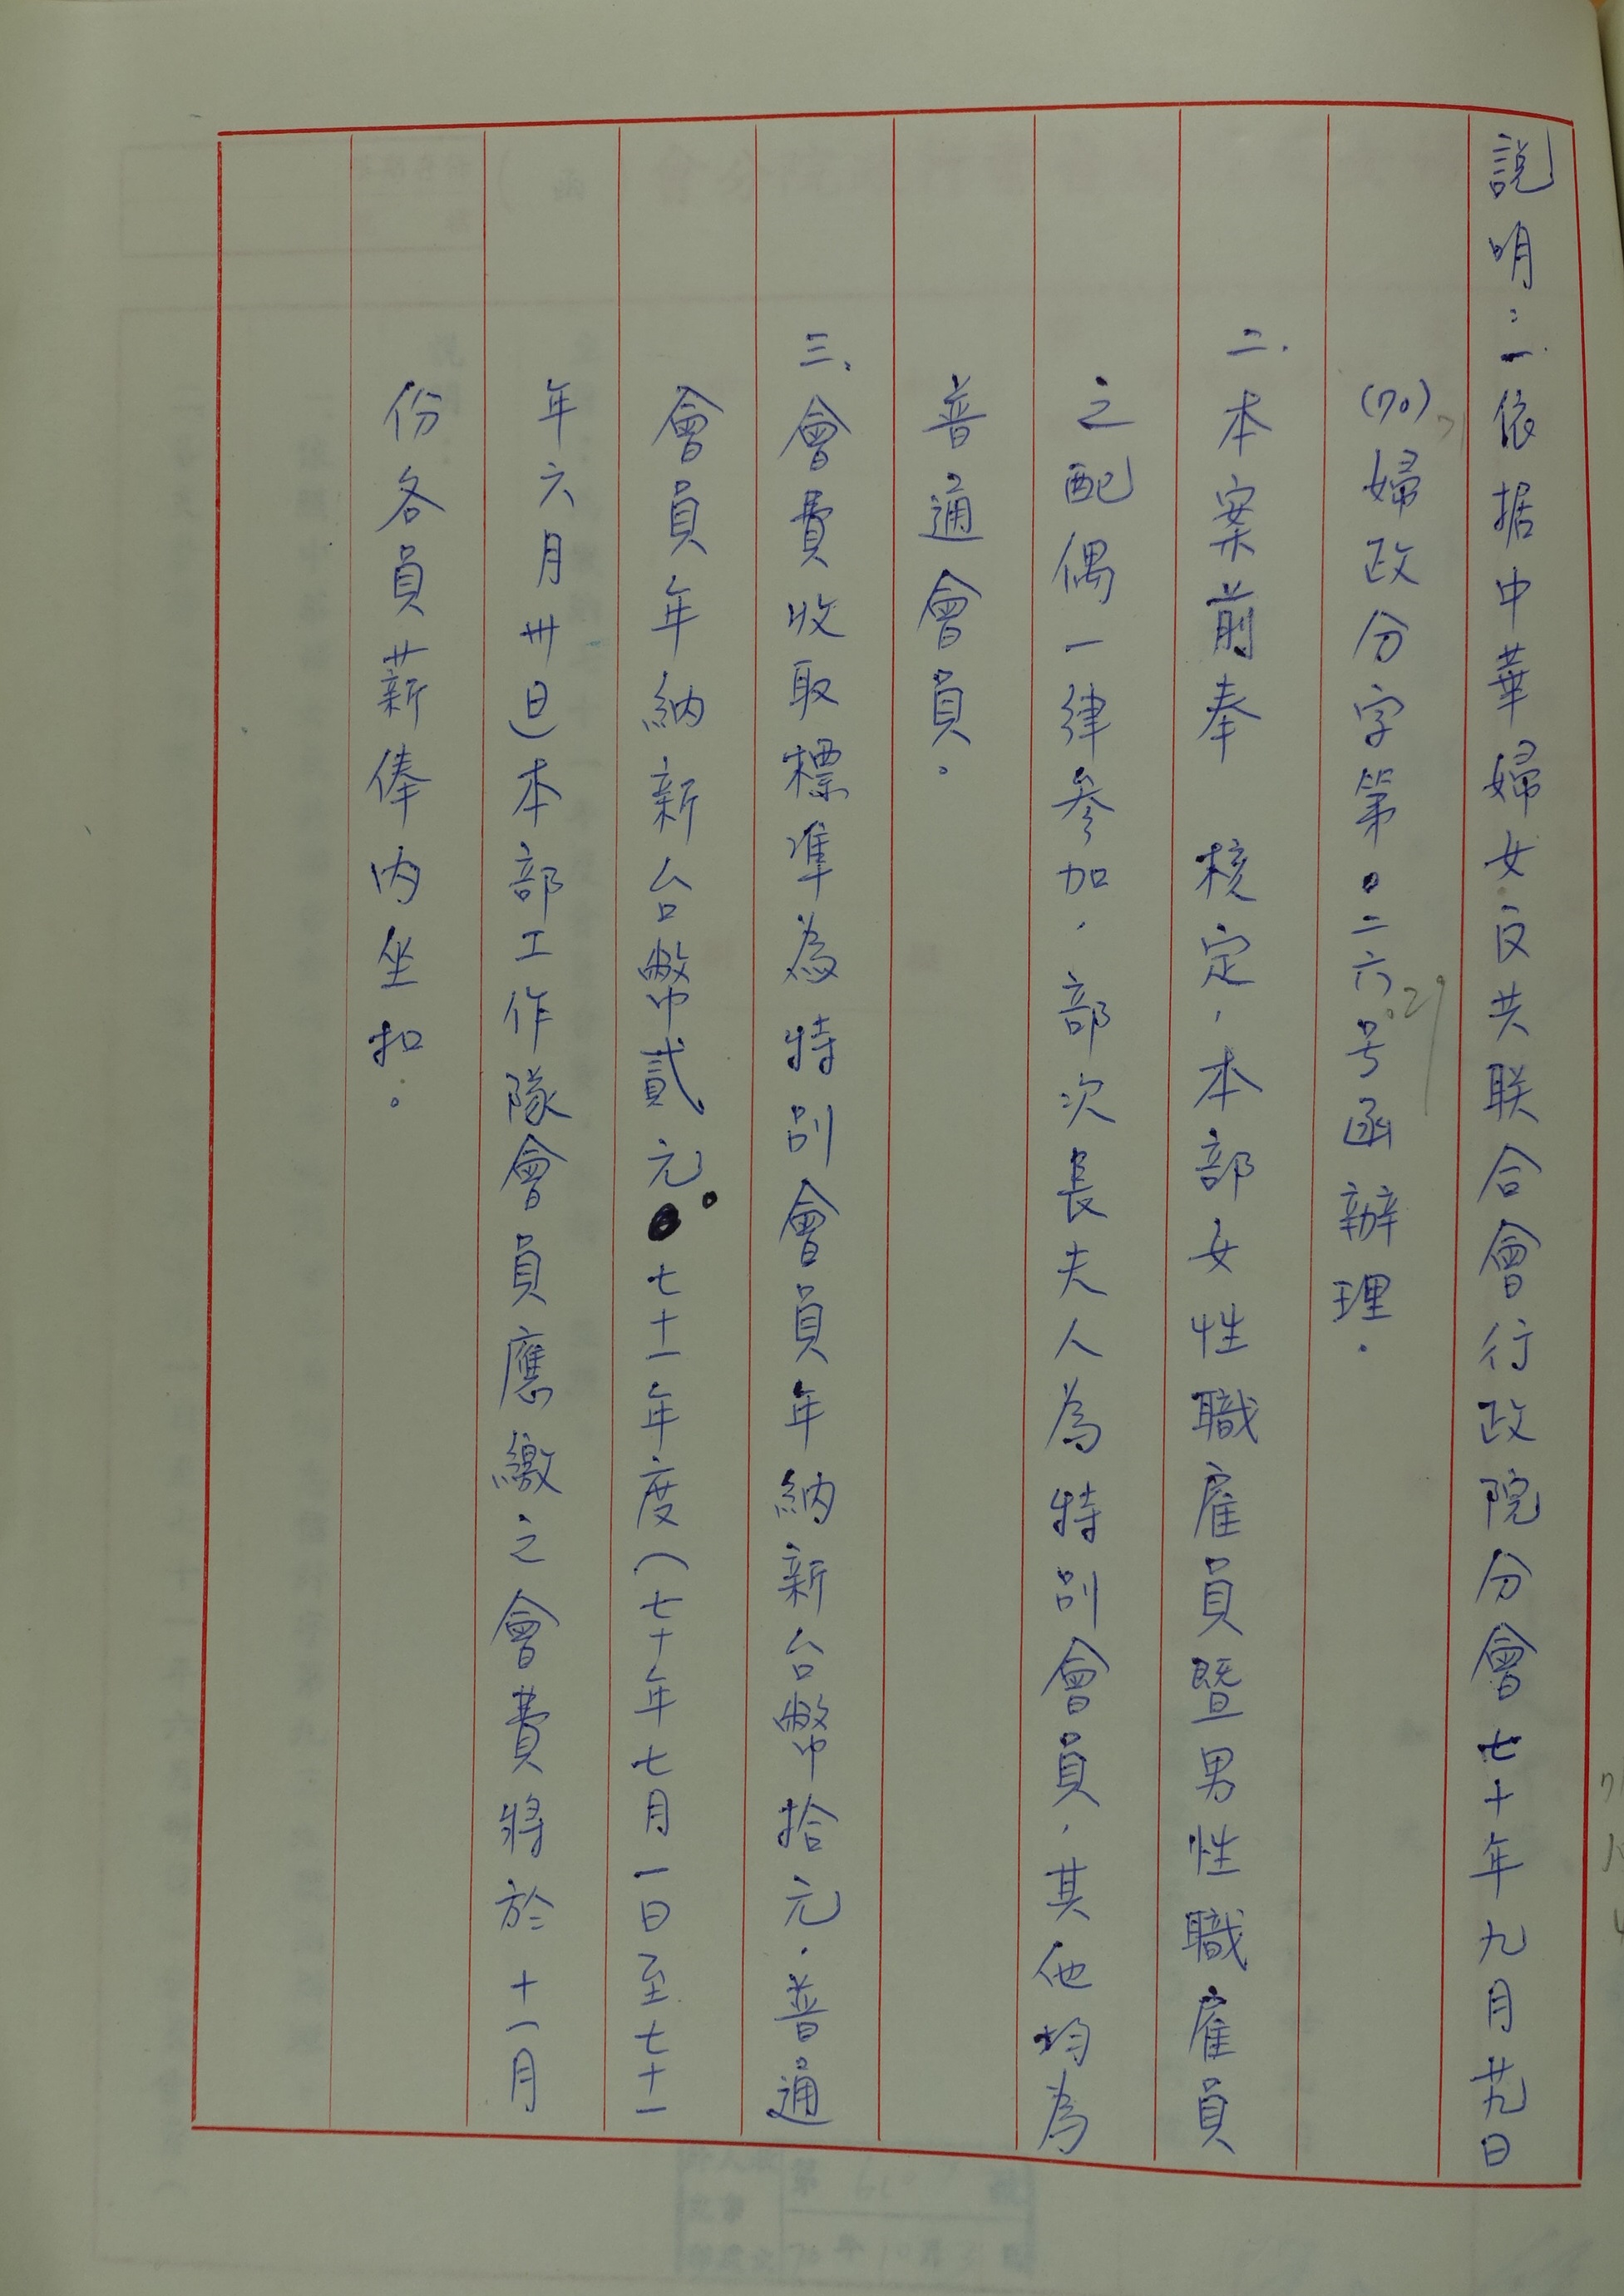 說明：一依据中華婦女反共联合會行政院分會七十年九月廿九日
(70)婦政分字第0二六号函辦理．
71
.29
二．本案前奉　核定，本部女性職雇員暨男性職雇員
之配偶一律參加，部次長夫人為特別會員，其他均為
普通會員。
三、會費收取標準為特別會員年納新台幣拾元．普通
會員年納新台幣貳元。七十一年度(七十年七月一日至七十一
年六月卅日)本部工作隊會員應繳之會費將於十一月
份各員薪俸内坐扣。